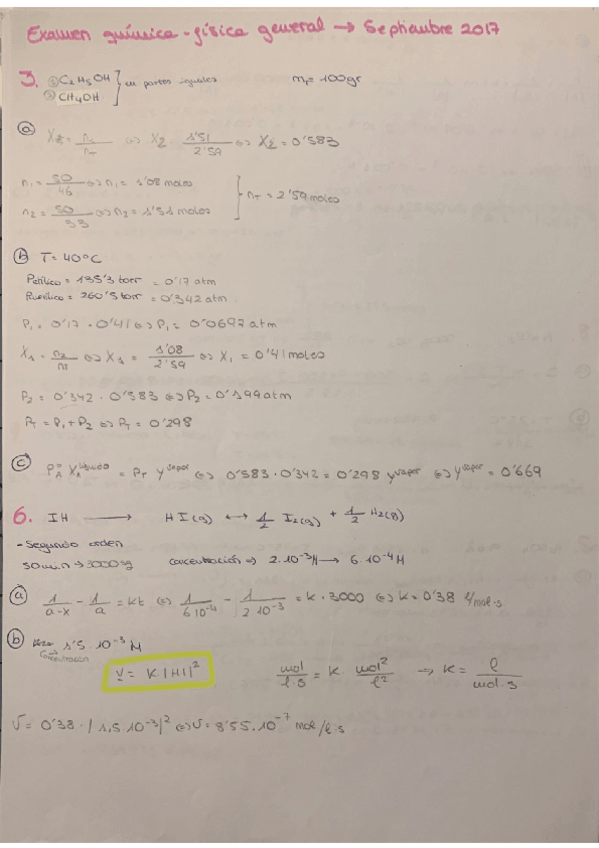 Examen química - física general → Septiembre 2017
3. ① C₂H₅OH } en partes iguales mT = 100gr
② CH₄OH
ⓐ X₂ = n₂/nT ⇔ X₂ = 1'51/2'59 ⇔ X₂ = 0'583
n₁ = 50/46 ⇔ n₁ = 1'08 moles } nT = 2'59 moles
n₂ = 50/33 ⇔ n₂ = 1'51 moles
ⓑ T = 40ºC
Petílico = 135'3 torr = 0'17 atm
= 260'5 torr = 0'342 atm
P₁ = 0'17 · 0'41 ⇔ P₁ = 0'0697 atm
X₁ = n₂/n ⇔ X₁ = 1'08/2'59 ⇔ X₁ = 0'41 moles
P₂ = 0'342 · 0'583 ⇔ P₂ = 0'199 atm
PT = P₁ + P₂ ⇔ PT = 0'298
ⓒ P°A XA líquido = PT Y vapor ⇔ 0'583 · 0'342 = 0'298 y vapor ⇔ y vapor = 0'669
6. IH ⟶ HI(g) ↔ 1/2 I₂(g) + 1/2 H₂(g)
- Segundo orden
50min → 3000 sg concentración ⇒ 2.10⁻³M → 6.10⁻⁴M
ⓐ 1/(a-x) - 1/a = kt ⇔ 1/(6·10⁻⁴) - 1/(2·10⁻³) = k · 3000 ⇔ k = 0'38 l/mol·s
ⓑ 1'5 . 10⁻³ M
Concentración
V = K |HI|² mol/l·s = k · mol²/l² → k = l/mol·s
V = 0'38 · |1,5.10⁻³|² ⇔ V = 8'55.10⁻⁷ mol/l·s